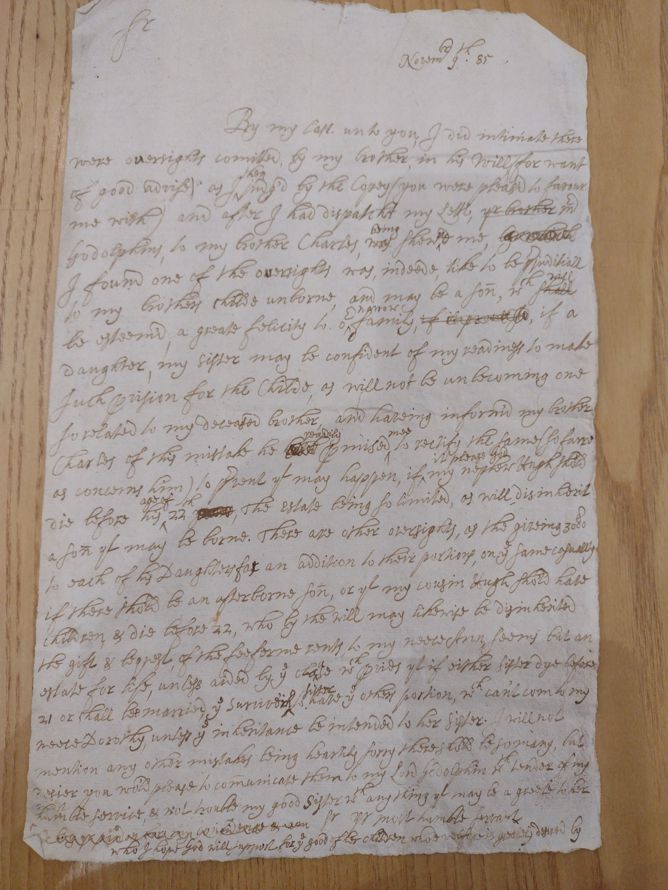 Sr
Novembr 9th. 85.
By my last unto you, I did intimate there
were oversights comitted, by my brother, in his Will (for want
of good advise) as I then judg'd by the Copey you were pleased to favour
me with) and after I had dispatcht my Lett, yr brother
Godolphins, to my brother Charles, being shewd me,
I found one of the oversights was, indeede like to be
to my brothers childe unborne, and may be a son, wch
be esteemd, a greate felicity to our family, if a
daughter, my sister may be confident of my readiness to make
such pvision for the Childe, as will not be unbecoming one
so related to my deceased brother, and haveing informd my brother
Charles of this mistake he readily pmised mee to rectify the same so farre
as concerns him) to pvent yt may happen, if, it please God my nephew Hugh shold
die before his age of 22, the estate being so limited, as will disinherit
a son yt may be borne. There are other oversights, as the giveing 3000
to each of his Daughters for an addition to their portions, on ye same casualty
if there shold be an afterborne son, or yt my cousin Hugh shold have
children, & die before 22, who by the will may likewise be disinherited
the gift & bequest of the feefarme rents to my neece Ann, seems but an
estate for life, unless aided by ye clause wch pvids yt if either sister dye before
21 or shall be married, ye surviving sister to have ye others portion, wch can't com to my
neece Dorothy unless ye inheritance be intended to her sister. I will not
mention any other mistakes being heartily sorry there shold be so many, but
desier you would please to comunicate them to my Lord Godolphin wth tender of my
humble service & not trouble my good sister wth anything yt may be a greefe to her
Sr yr most humble servant
who I hope God will support for ye good of her children whose welfare is greately desired by